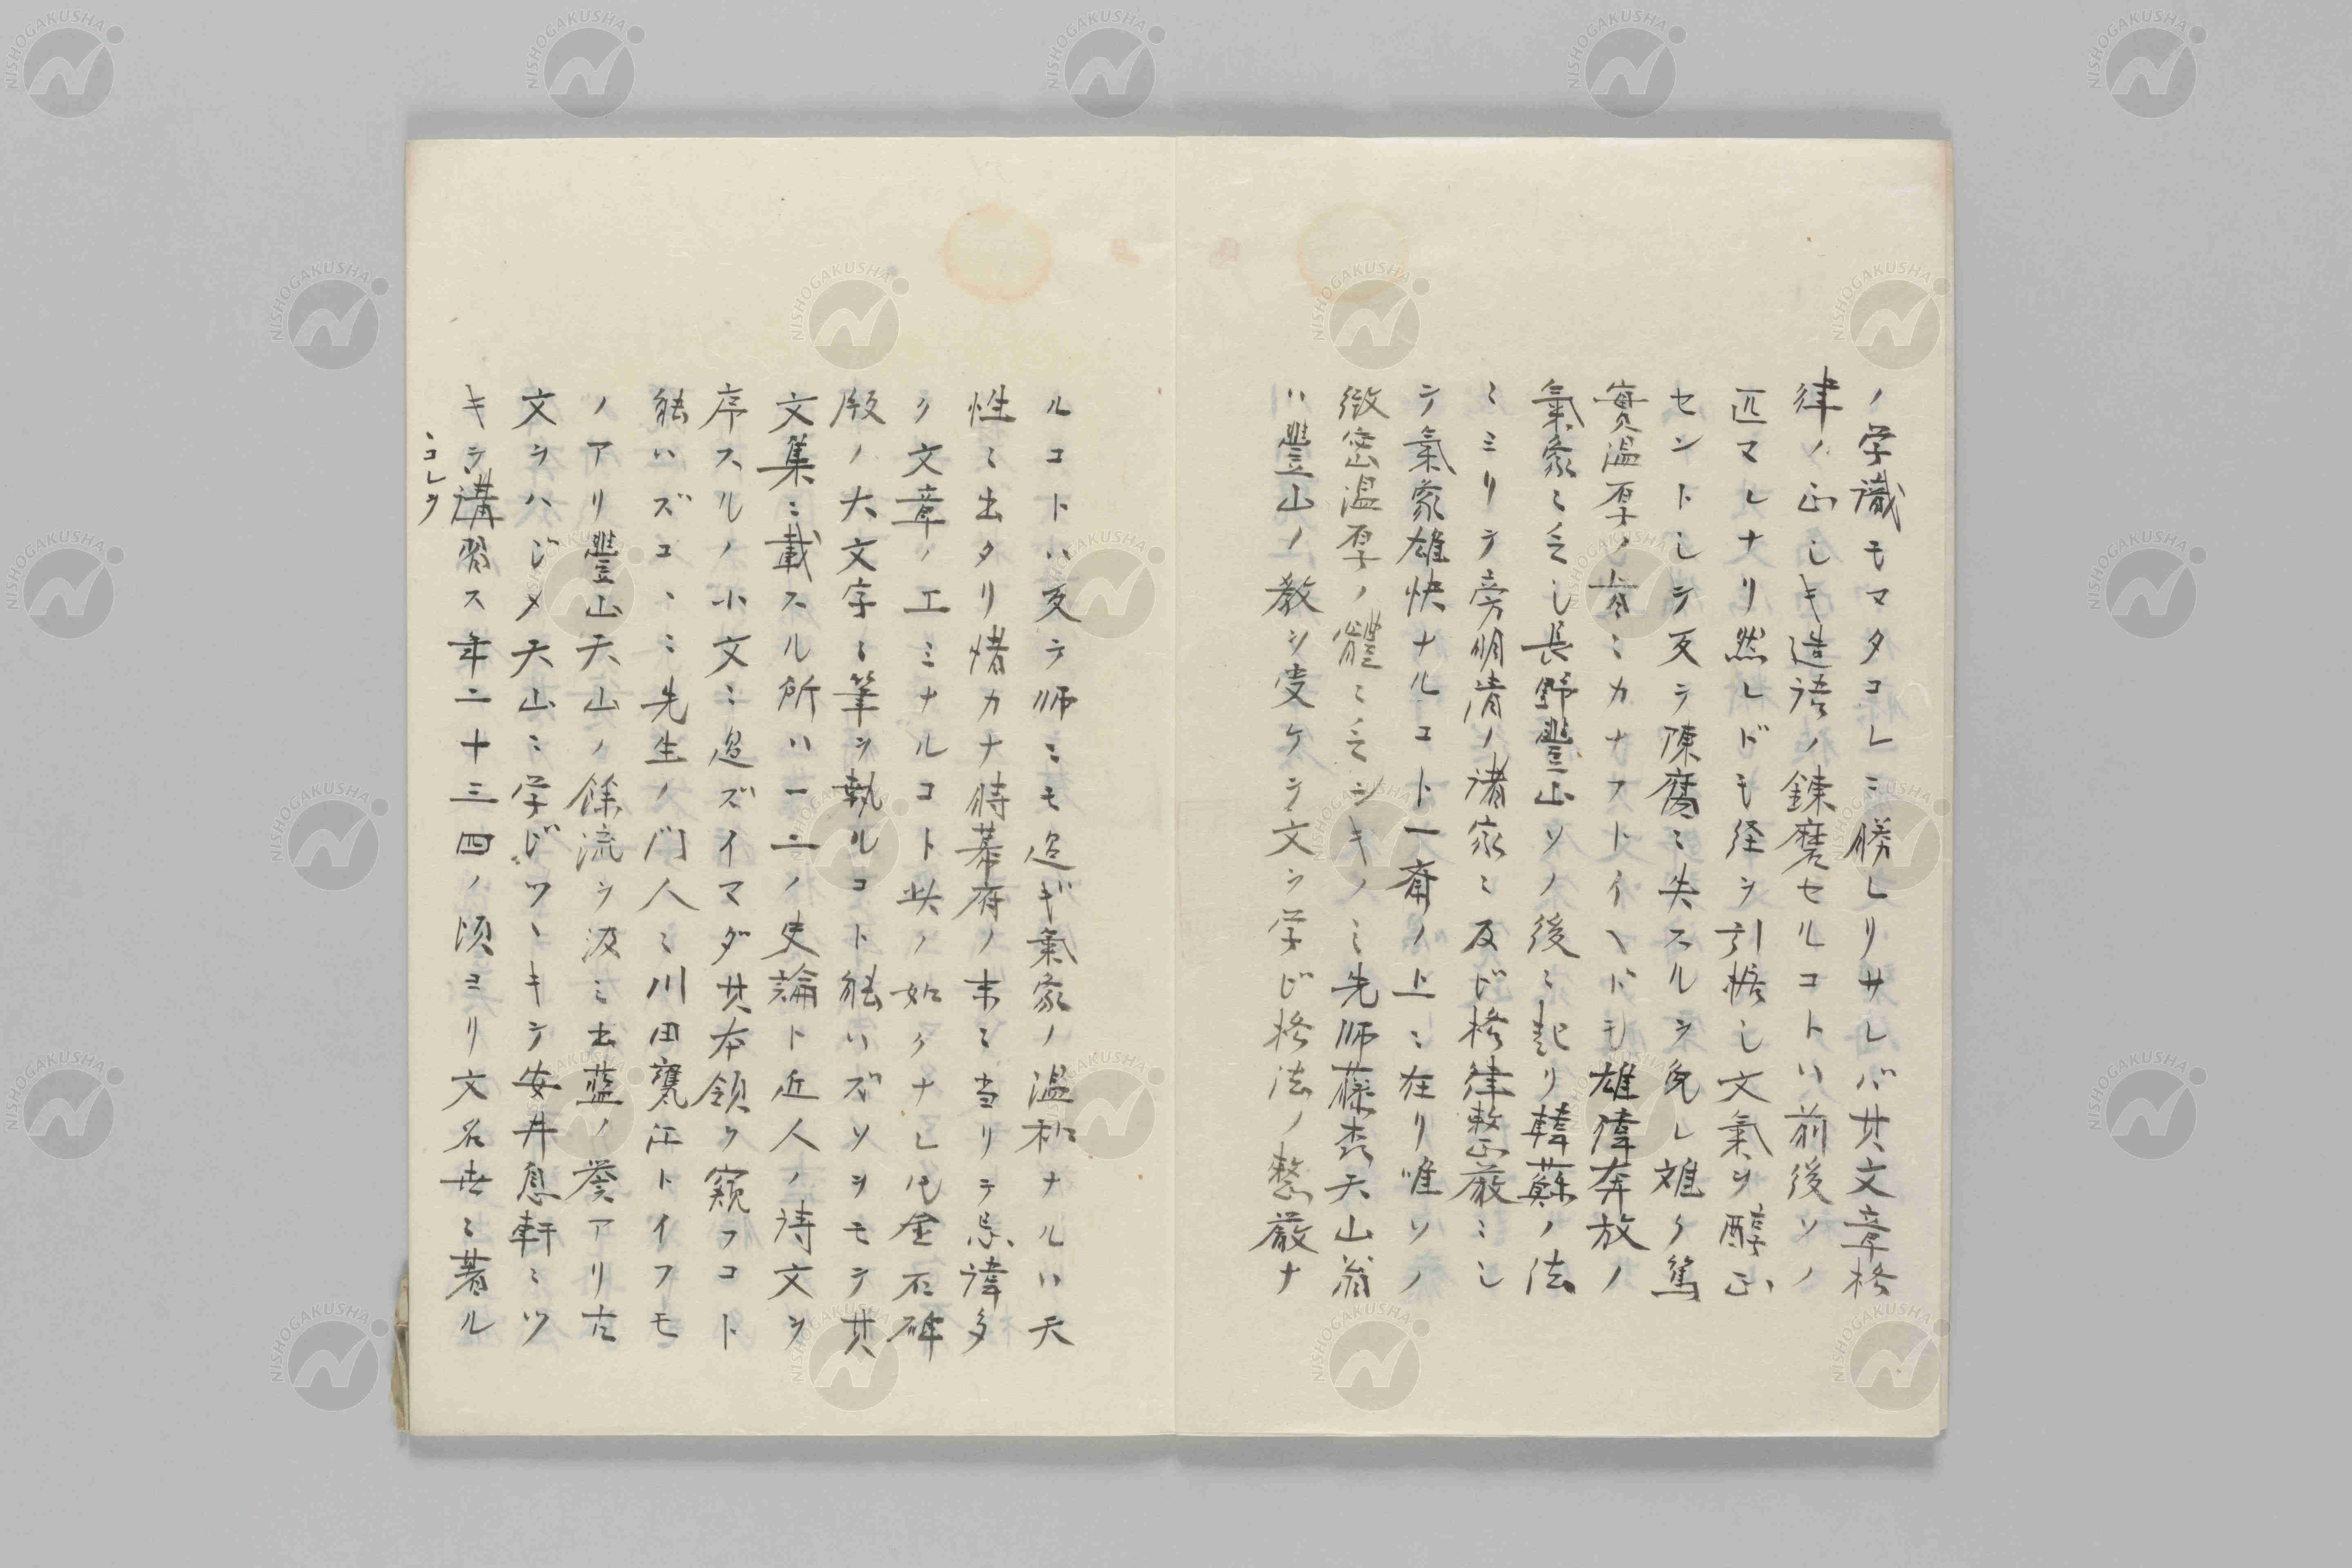 ノ学識モマタコレニ勝レリサレバ其文章格
律ノ正シキ造語ノ錬磨セルコトハ前後ソノ
匹マレナリ然レドモ経ヲ引據シ文氣ヲ醇正
セントシテ反テ陳腐ニ失スルヲ免レ難ク篤
實温厚ノ旨ニカナフトイヘドモ雄偉奔放ノ
氣象ニ乏シ長野豐山ソノ後ニ起リ韓蘇ノ法
ニミリテ旁明清ノ諸家ニ及ビ格律整嚴ニシ
テ氣象雄快ナルコト一齋ノ上ニ在リ唯ソノ
微密温厚ノ體ニ乏シキノミ先師藤森天山翁
ハ豐山ノ教ヲ受ケテ文ヲ学ビ格法ノ整嚴ナ
ルコトハ反テ師ニモ過ギ氣象ノ温和ナルハ天
性ニ出タリ惜カナ時幕府ノ末ニ当リテ忌諱多
ク文章ノ工ミナルコト此ノ如クナレ𪜈金石碑
版ノ大文字ニ筆ヲ執ルコト能ハズソヲモテ其
文集ニ載スル所ハ一二ノ史論ト近人ノ詩文ヲ
序スルノ小文ニ過ズイマダ其本領ヲ窺フコト
能ハズコヽニ先生ノ門人ニ川田甕江トイフモ
ノアリ豐山天山ノ餘流ヲ汲ミ出藍ノ誉アリ古
文ヲハジメ天山ニ学ビツヽキテ安井息軒ニツ
キテ講習ス年二十三四ノ頃ヨリ文名世ニ著ル
ニコレヲ